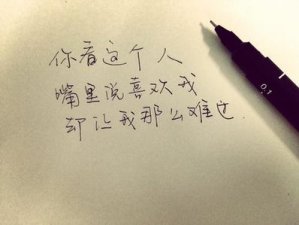 你看这个人
嘴里说喜欢我
却让我那么难过
0.1